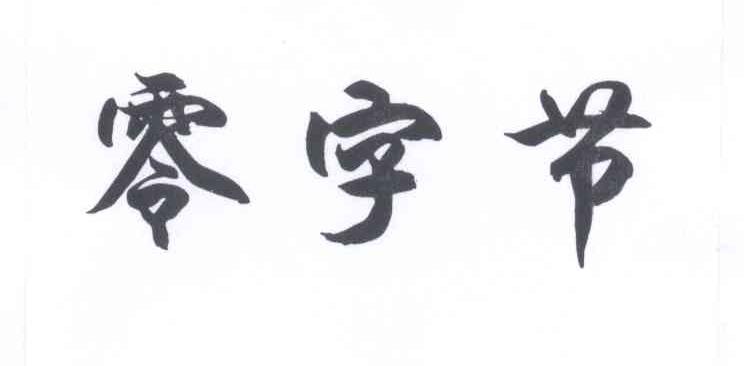 零字节